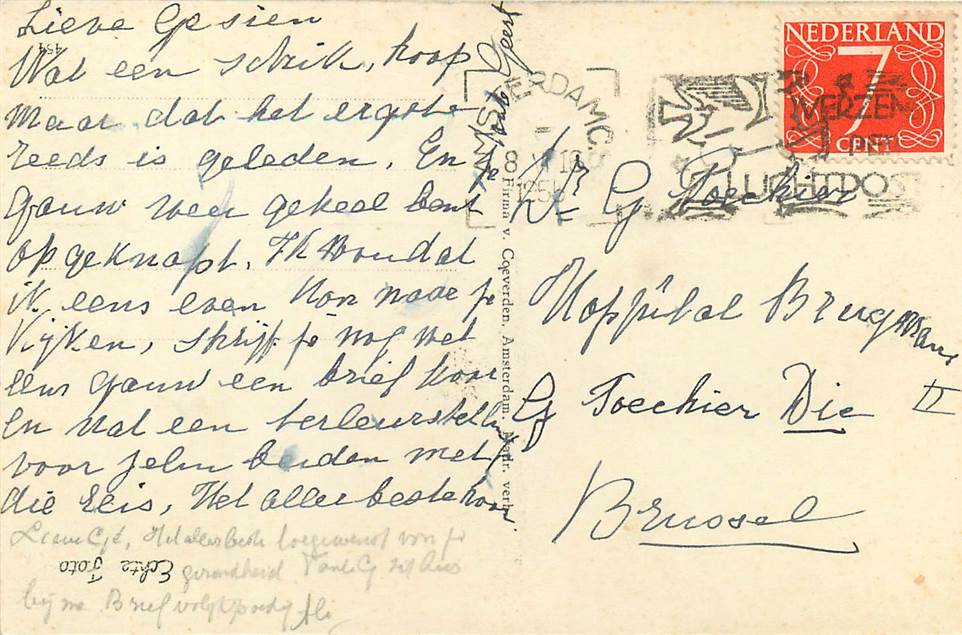 Lieve Gesien
Wat een schrik, hoop
maar dat het ergste
reeds is geleden, En je
gauw weer geheel bent
opgeknapt. Ik Wou dat
ik eens even kon naar je
Kijken, schrijf je nog wel
eens gauw een brief hoor
En wat een terleurstelling
voor jelui beiden met
die Reis, Het allerbeste hoor
Lieve Het allerbeste toegewenst van je
gezondheid Tante
bij me Brief volgt spoedig
Echte Foto
454
Firma v. Coeverden, Amsterdam.
NEDERLAND
7
CENT
AMSTERDAM C.
8 X
195
VERZEN
PER
LUCHTPOST
G Toechier
Hoppital Brugmans
G Toechier Die II
Brussel